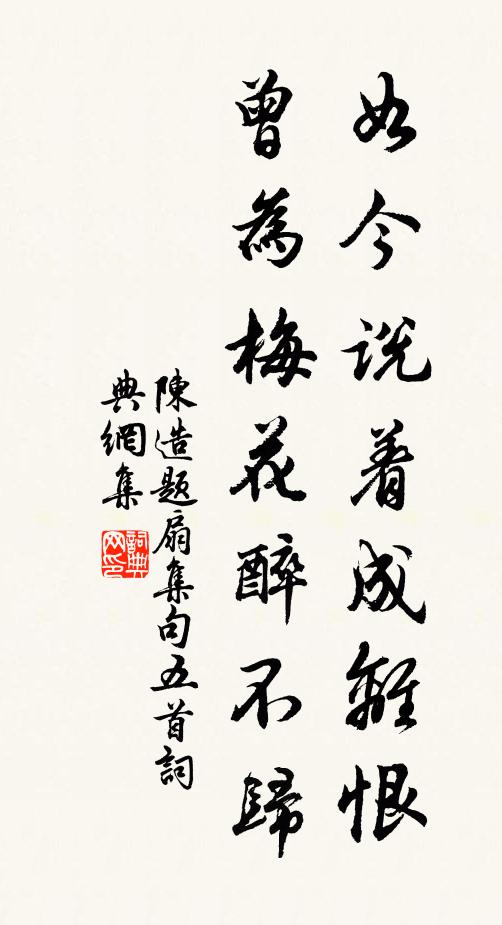 如今說着成離恨
曾為梅花醉不歸
陳造題扇集句五首詞
典網集
詞典網印